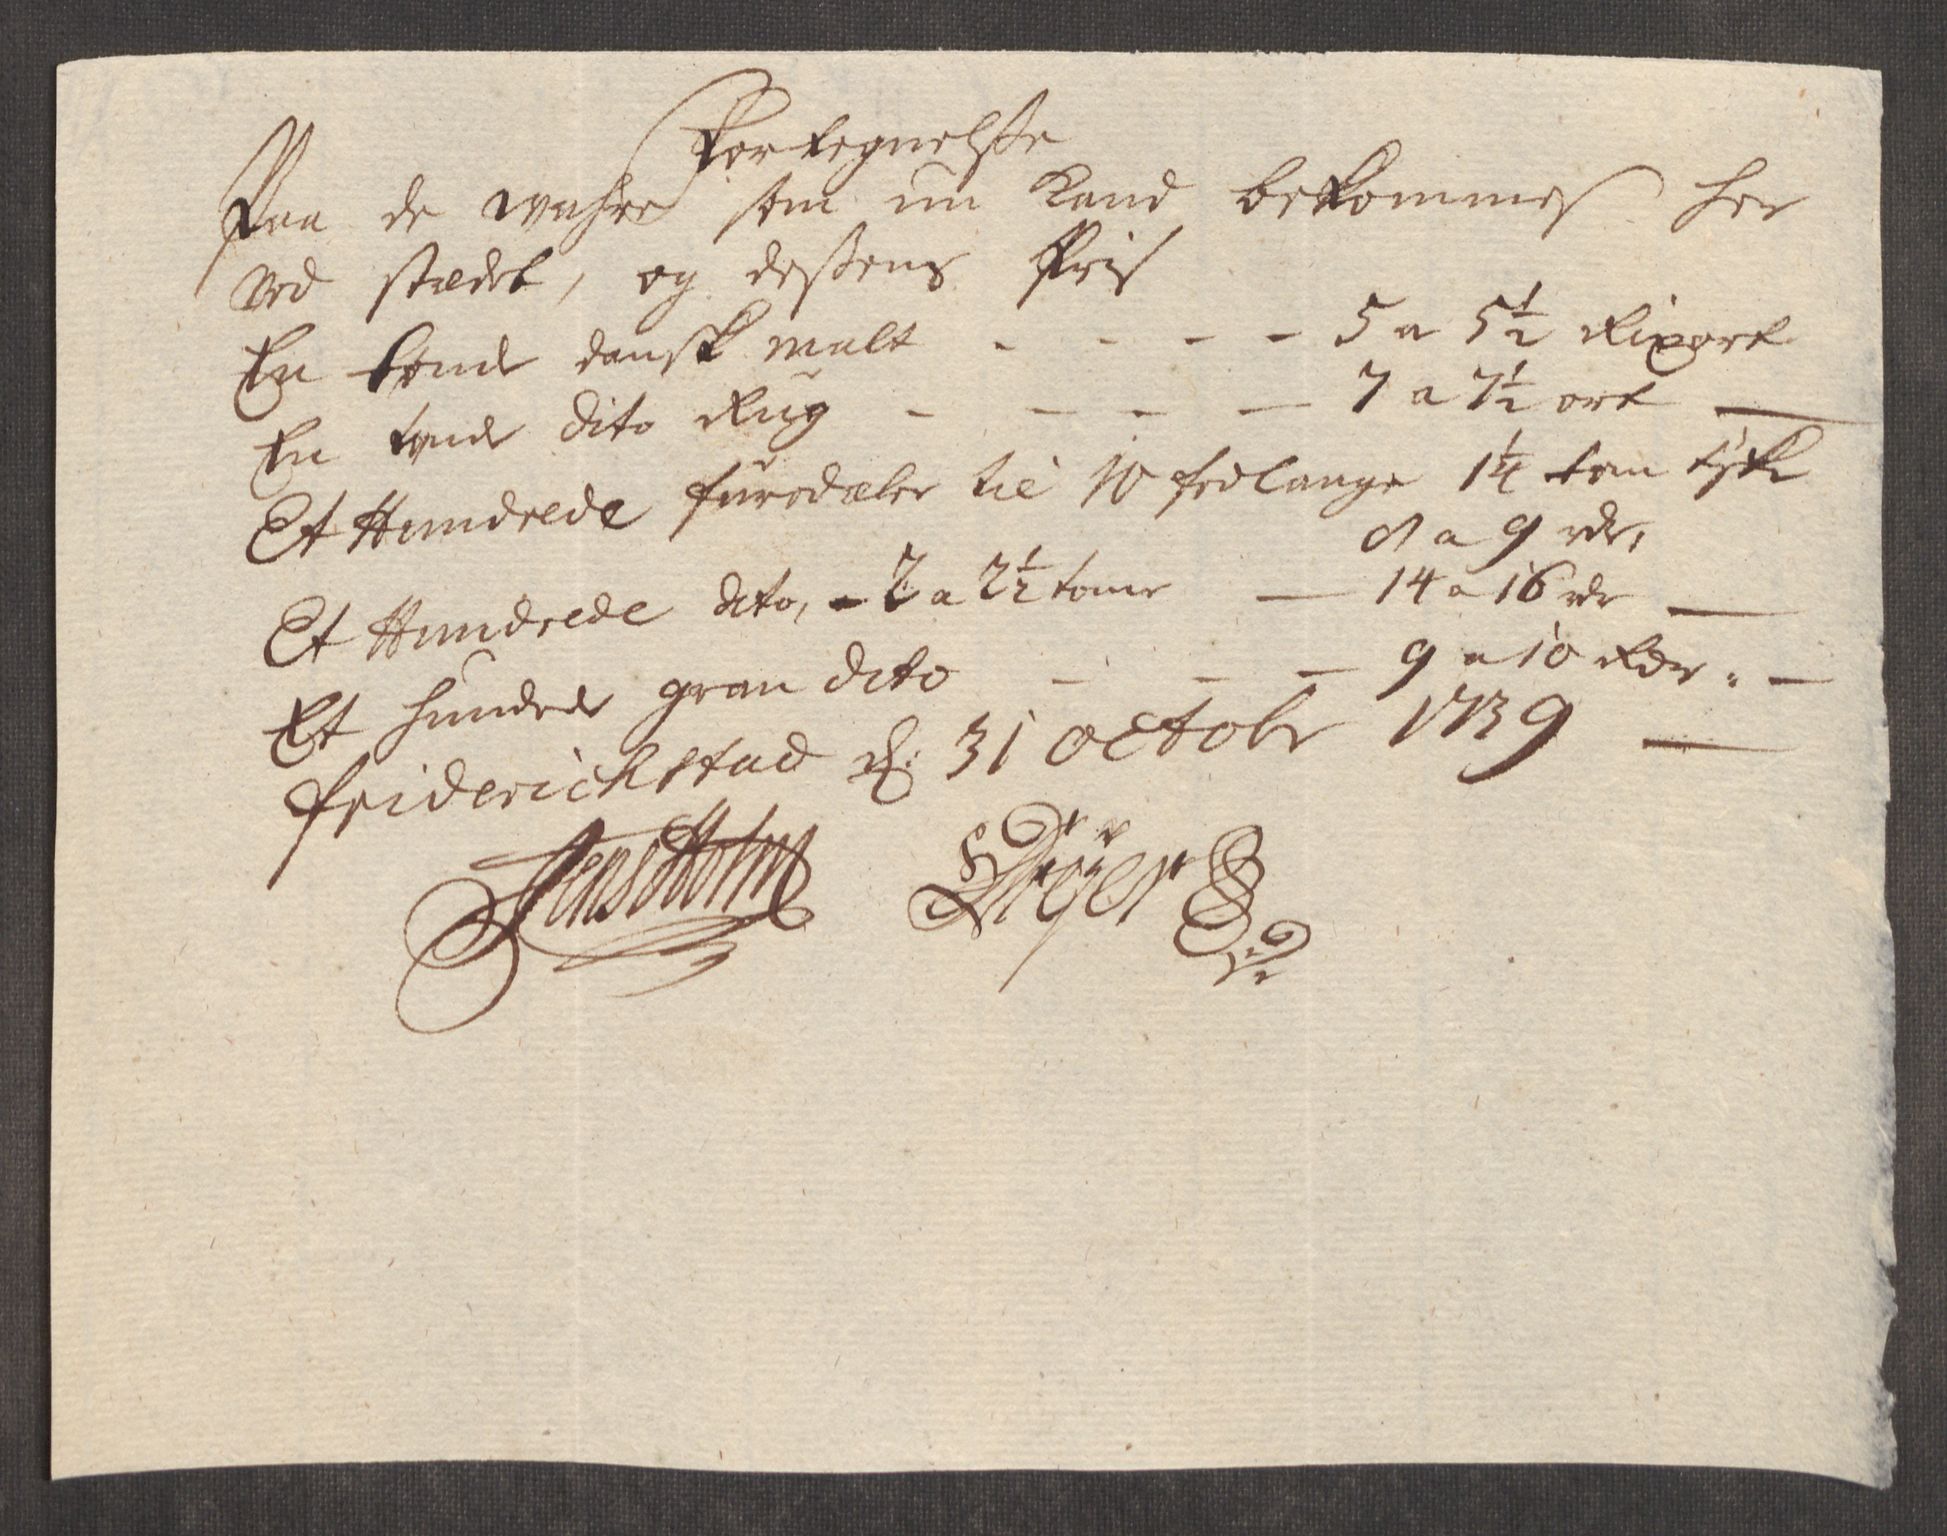 Fortegnelsse
Paa de wahre som nu Kand bekommes her
ved stædet, og dessens Pris
En tønde dansk malt - - - - 5 a 5½ Rixort
En tønde dito Rug - - - - 7 a 7½ ort —
Et Hundrede furredæler til 10 fod lange 1¼ tom tyk
8 a 9 rdr,
Et Hundrede dito, 2 a 2½ tome — 14 a 16 rdr —
Et hundrede gran dito - - - 9 a 10 Rdr. —
friderichstad d: 31 octobr 1739 —
Jens Holm Dreyer